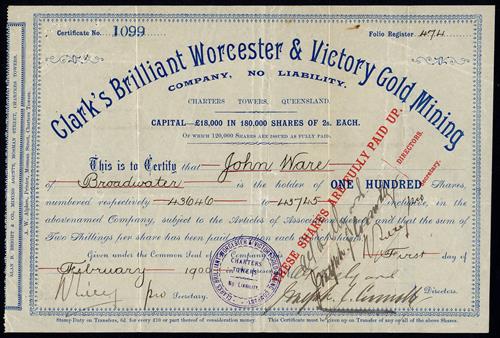 Certificate No. 1099
Folio Register 474
Clark's Brilliant Worcester & Victory Gold Mining
COMPANY, NO LIABILITY.
CHARTERS TOWERS, QUEENSLAND.
CAPITAL—£18,000 IN 180,000 SHARES OF 2s. EACH.
Of which 120,000 Shares are issued as fully paid.
This is to Certify that John Ware
of Broadwater is the holder of ONE HUNDRED Shares,
numbered respectively 43646 to 43745 inclusive
abovenamed Company, subject to the Articles of Association and that the sum of
Two Shillings per share has been paid
Given under the Common Seal of the Company First day of
February 1900
pro Secretary.
Directors.
THESE SHARES ARE FULLY PAID UP.
DIRECTORS.
Secretary.
CHARTERS
TOWERS
NO LIABILITY
Stamp Duty on Transfers, 6d. for every £10 or part thereof of consideration money.
This Certificate must be given up on Transfer of any or all of the above Shares.